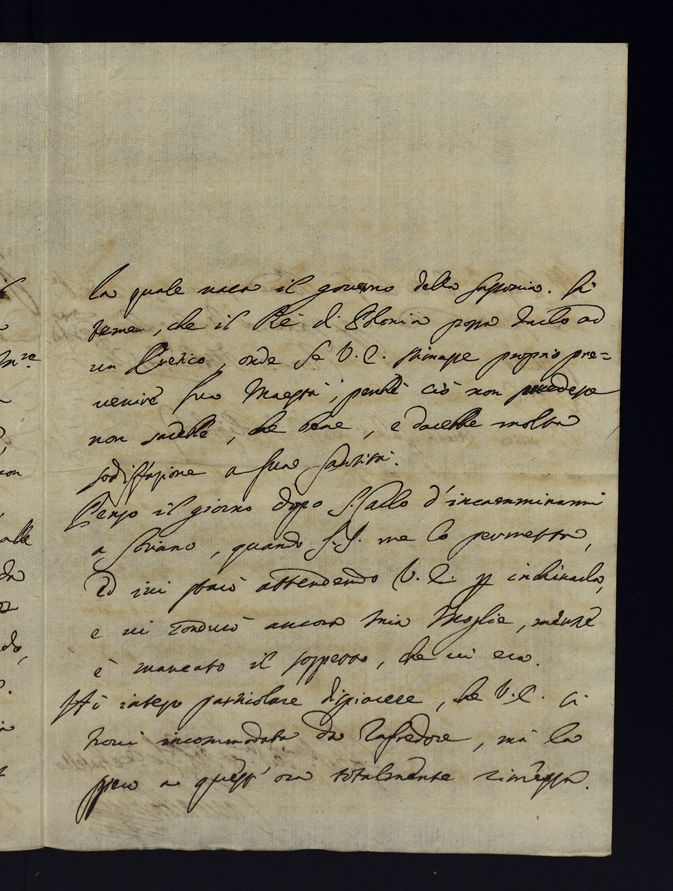 la quale vaca il governo della Sassonia. Si
teme, che il Rè di Polonia possa darlo ad
un Eretico, onde se V. E. stimasse proprio pre=
venire Sua Maestà, perchè ciò non succedesse
non sarebbe, che bene, e darebbe molta
sodisfazione a Sua Santità.
Penso il giorno dopo S. Carlo d'incamminarmi
a Soriano, quando S. S. me lo permetta,
ed ivi starò attendendo V. E. p inchinarla,
e vi condurrò ancora mia Moglie, mentre
è mancato il sospetto, che vi era.
Hò inteso particolare dispiacere, che V. E. si
trovi incommodata da Rafredore, mà la
spero a quest'ora totalmente rimessa.